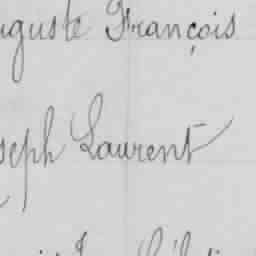 uguste François
seph Laurent